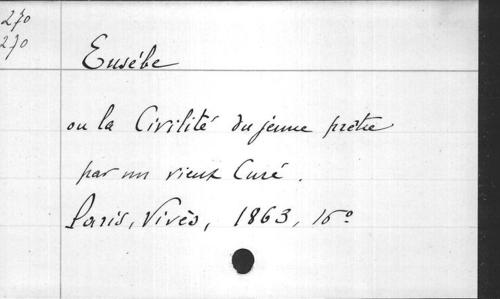 270
270
Eusébe
ou la Civilité du jeune prêtre
par un vieux Curé.
Paris, Vivès, 1863, 16º